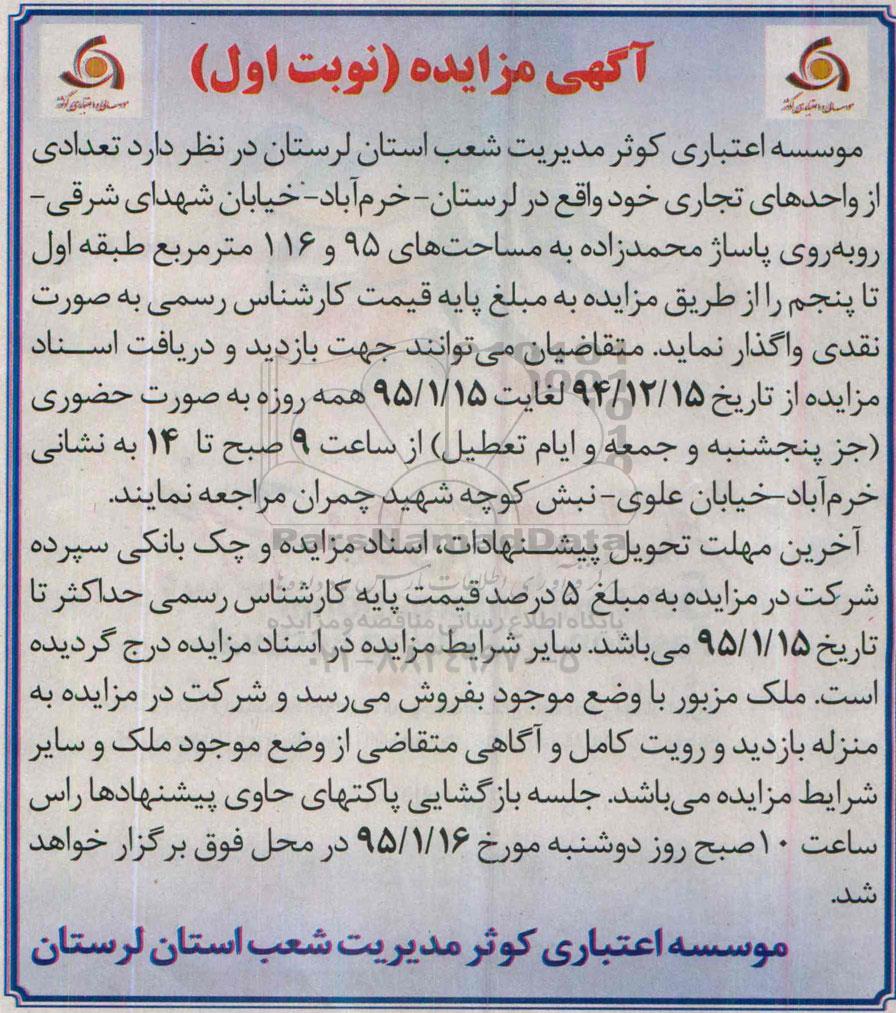 آگهی مزایده (نوبت اول)
موسسه اعتباری کوثر مدیریت شعب استان لرستان در نظر دارد تعدادی
از واحدهای تجاری خود واقع در لرستان-خرم‌آباد-خیابان شهدای شرقی-
روبه‌روی پاساژ محمدزاده به مساحت‌های ۹۵ و ۱۱۶ مترمربع طبقه اول
تا پنجم را از طریق مزایده به مبلغ پایه قیمت کارشناس رسمی به صورت
نقدی واگذار نماید. متقاضیان می‌توانند جهت بازدید و دریافت اسناد
مزایده از تاریخ ۹۴/۱۲/۱۵ لغایت ۹۵/۱/۱۵ همه روزه به صورت حضوری
(جز پنجشنبه و جمعه و ایام تعطیل) از ساعت ۹ صبح تا ۱۴ به نشانی
خرم‌آباد-خیابان علوی-نبش کوچه شهید چمران مراجعه نمایند.
ParsNamadData
آخرین مهلت تحویل پیشنهادات، اسناد مزایده و چک بانکی سپرده
شرکت در مزایده به مبلغ ۵ درصد قیمت پایه کارشناس رسمی حداکثر تا
پایگاه اطلاع رسانی مناقصه و مزایده
تاریخ ۹۵/۱/۱۵ می‌باشد. سایر شرایط مزایده در اسناد مزایده درج گردیده
است. ملک مزبور با وضع موجود بفروش می‌رسد و شرکت در مزایده به
منزله بازدید و رویت کامل و آگاهی متقاضی از وضع موجود ملک و سایر
شرایط مزایده می‌باشد. جلسه بازگشایی پاکتهای حاوی پیشنهادها راس
ساعت ۱۰صبح روز دوشنبه مورخ ۹۵/۱/۱۶ در محل فوق برگزار خواهد
شد.
موسسه اعتباری کوثر مدیریت شعب استان لرستان